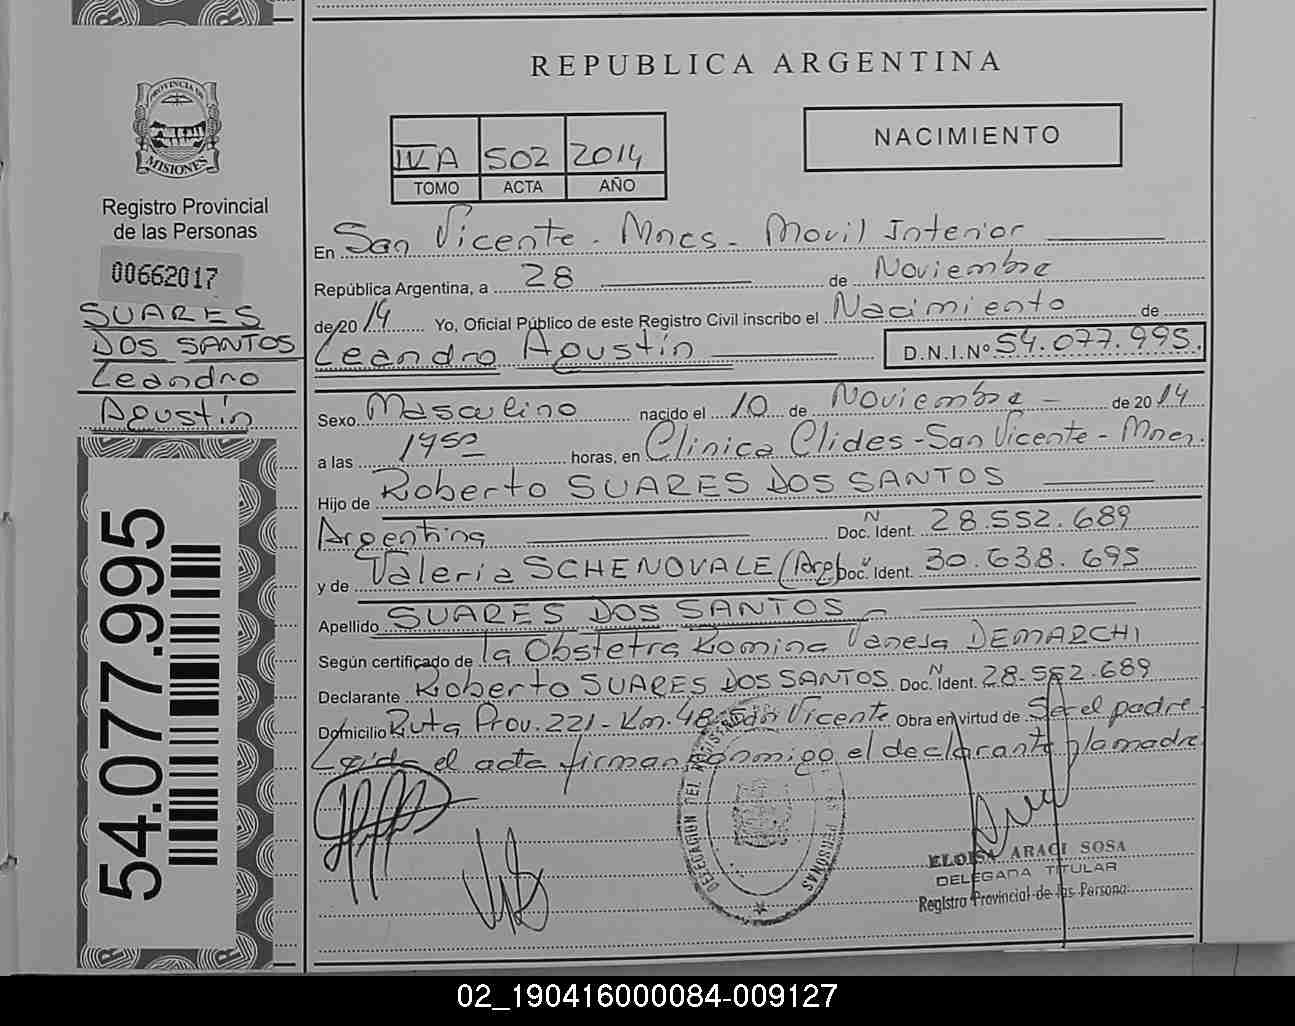 REPUBLICA ARGENTINA
PROVINCIA DE
MISIONES
Registro Provincial
de las Personas
00662017
SUARES
DOS SANTOS
Leandro
Agustín
54.077.995
IV A 502 2014
TOMO ACTA AÑO
NACIMIENTO
En San Vicente - Mnes - Movil Interior
República Argentina, a 28 de Noviembre
de 20 14 Yo, Oficial Público de este Registro Civil inscribo el Nacimiento de
Leandro Agustín D.N.I.Nº 54.077.995.
Sexo Masculino nacido el 10 de Noviembre - de 20 14
a las 1750 horas, en Clinica Clides - San Vicente - Mnes.
Hijo de Roberto SUARES DOS SANTOS
Argentina Doc. Ident. N 28.552.689
y de Valeria SCHENOVALE (Arg) Doc. Ident. 30.638.695
Apellido SUARES DOS SANTOS
Según certificado de la Obstetra Romina Vanesa DEMARCHI
Declarante Roberto SUARES DOS SANTOS Doc. Ident. N 28.552.689
Domicilio Ruta Prov. 221 - Km. 48 - San Vicente Obra en virtud de Ser el padre
Leída el acta firman conmigo el declarante y la madre
DELEGACION DEL PERSONAS
ELOISA ARACI SOSA
DELEGADA TITULAR
Registro Provincial de las Personas
02_190416000084-009127